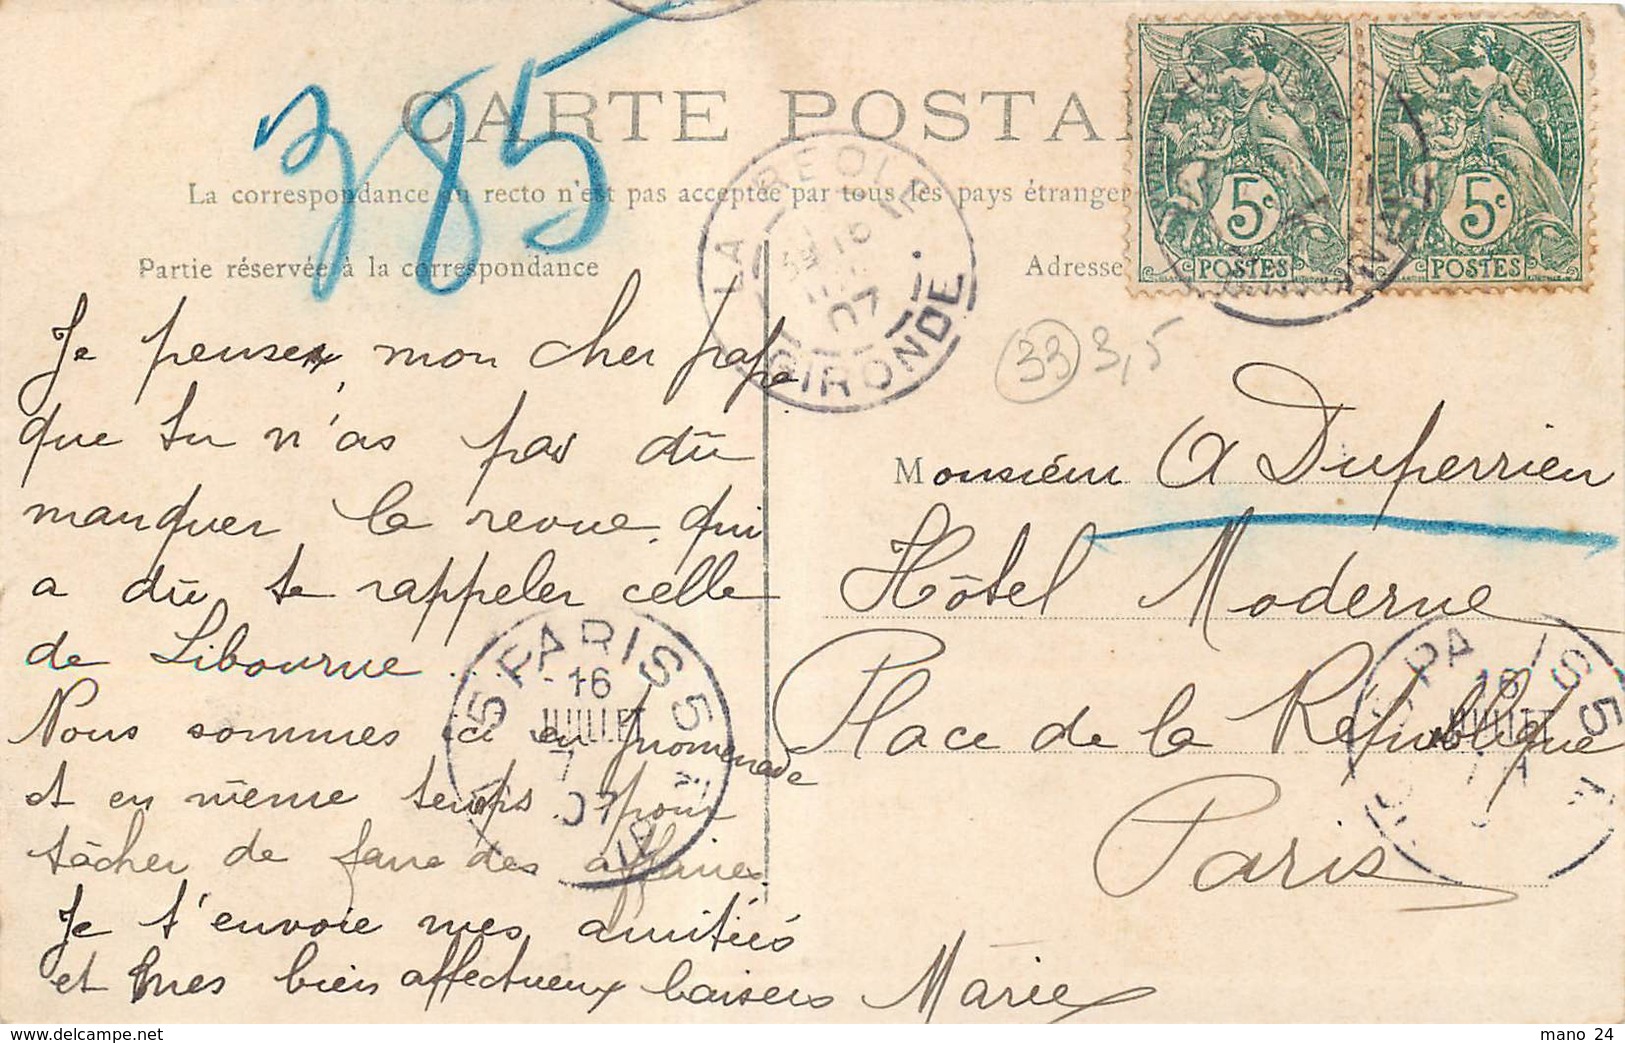 385
CARTE POSTA
La correspondance au recto n'est pas acceptée par tous les pays étranger
Partie réservée à la correspondance
Adresse
5c
POSTES
5c
POSTES
LA REOLE
16
07
GIRONDE
33 3,5
Je pense, mon cher papa
que tu n'as pas dû
manquer la revue, qui
a dû te rappeler celle
de Libourne ....
Nous sommes ici en promenade
et en même temps pour
tâcher de faire des affaires.
Je t'envoie mes amitiés
et mes bien affectueux baisers Marie
Monsieur A Duperrieu
Hôtel Moderne
Place de la République
Paris
PARIS 5
16
JUILLET
07
PA S 5
16
JUILLET
mano_24